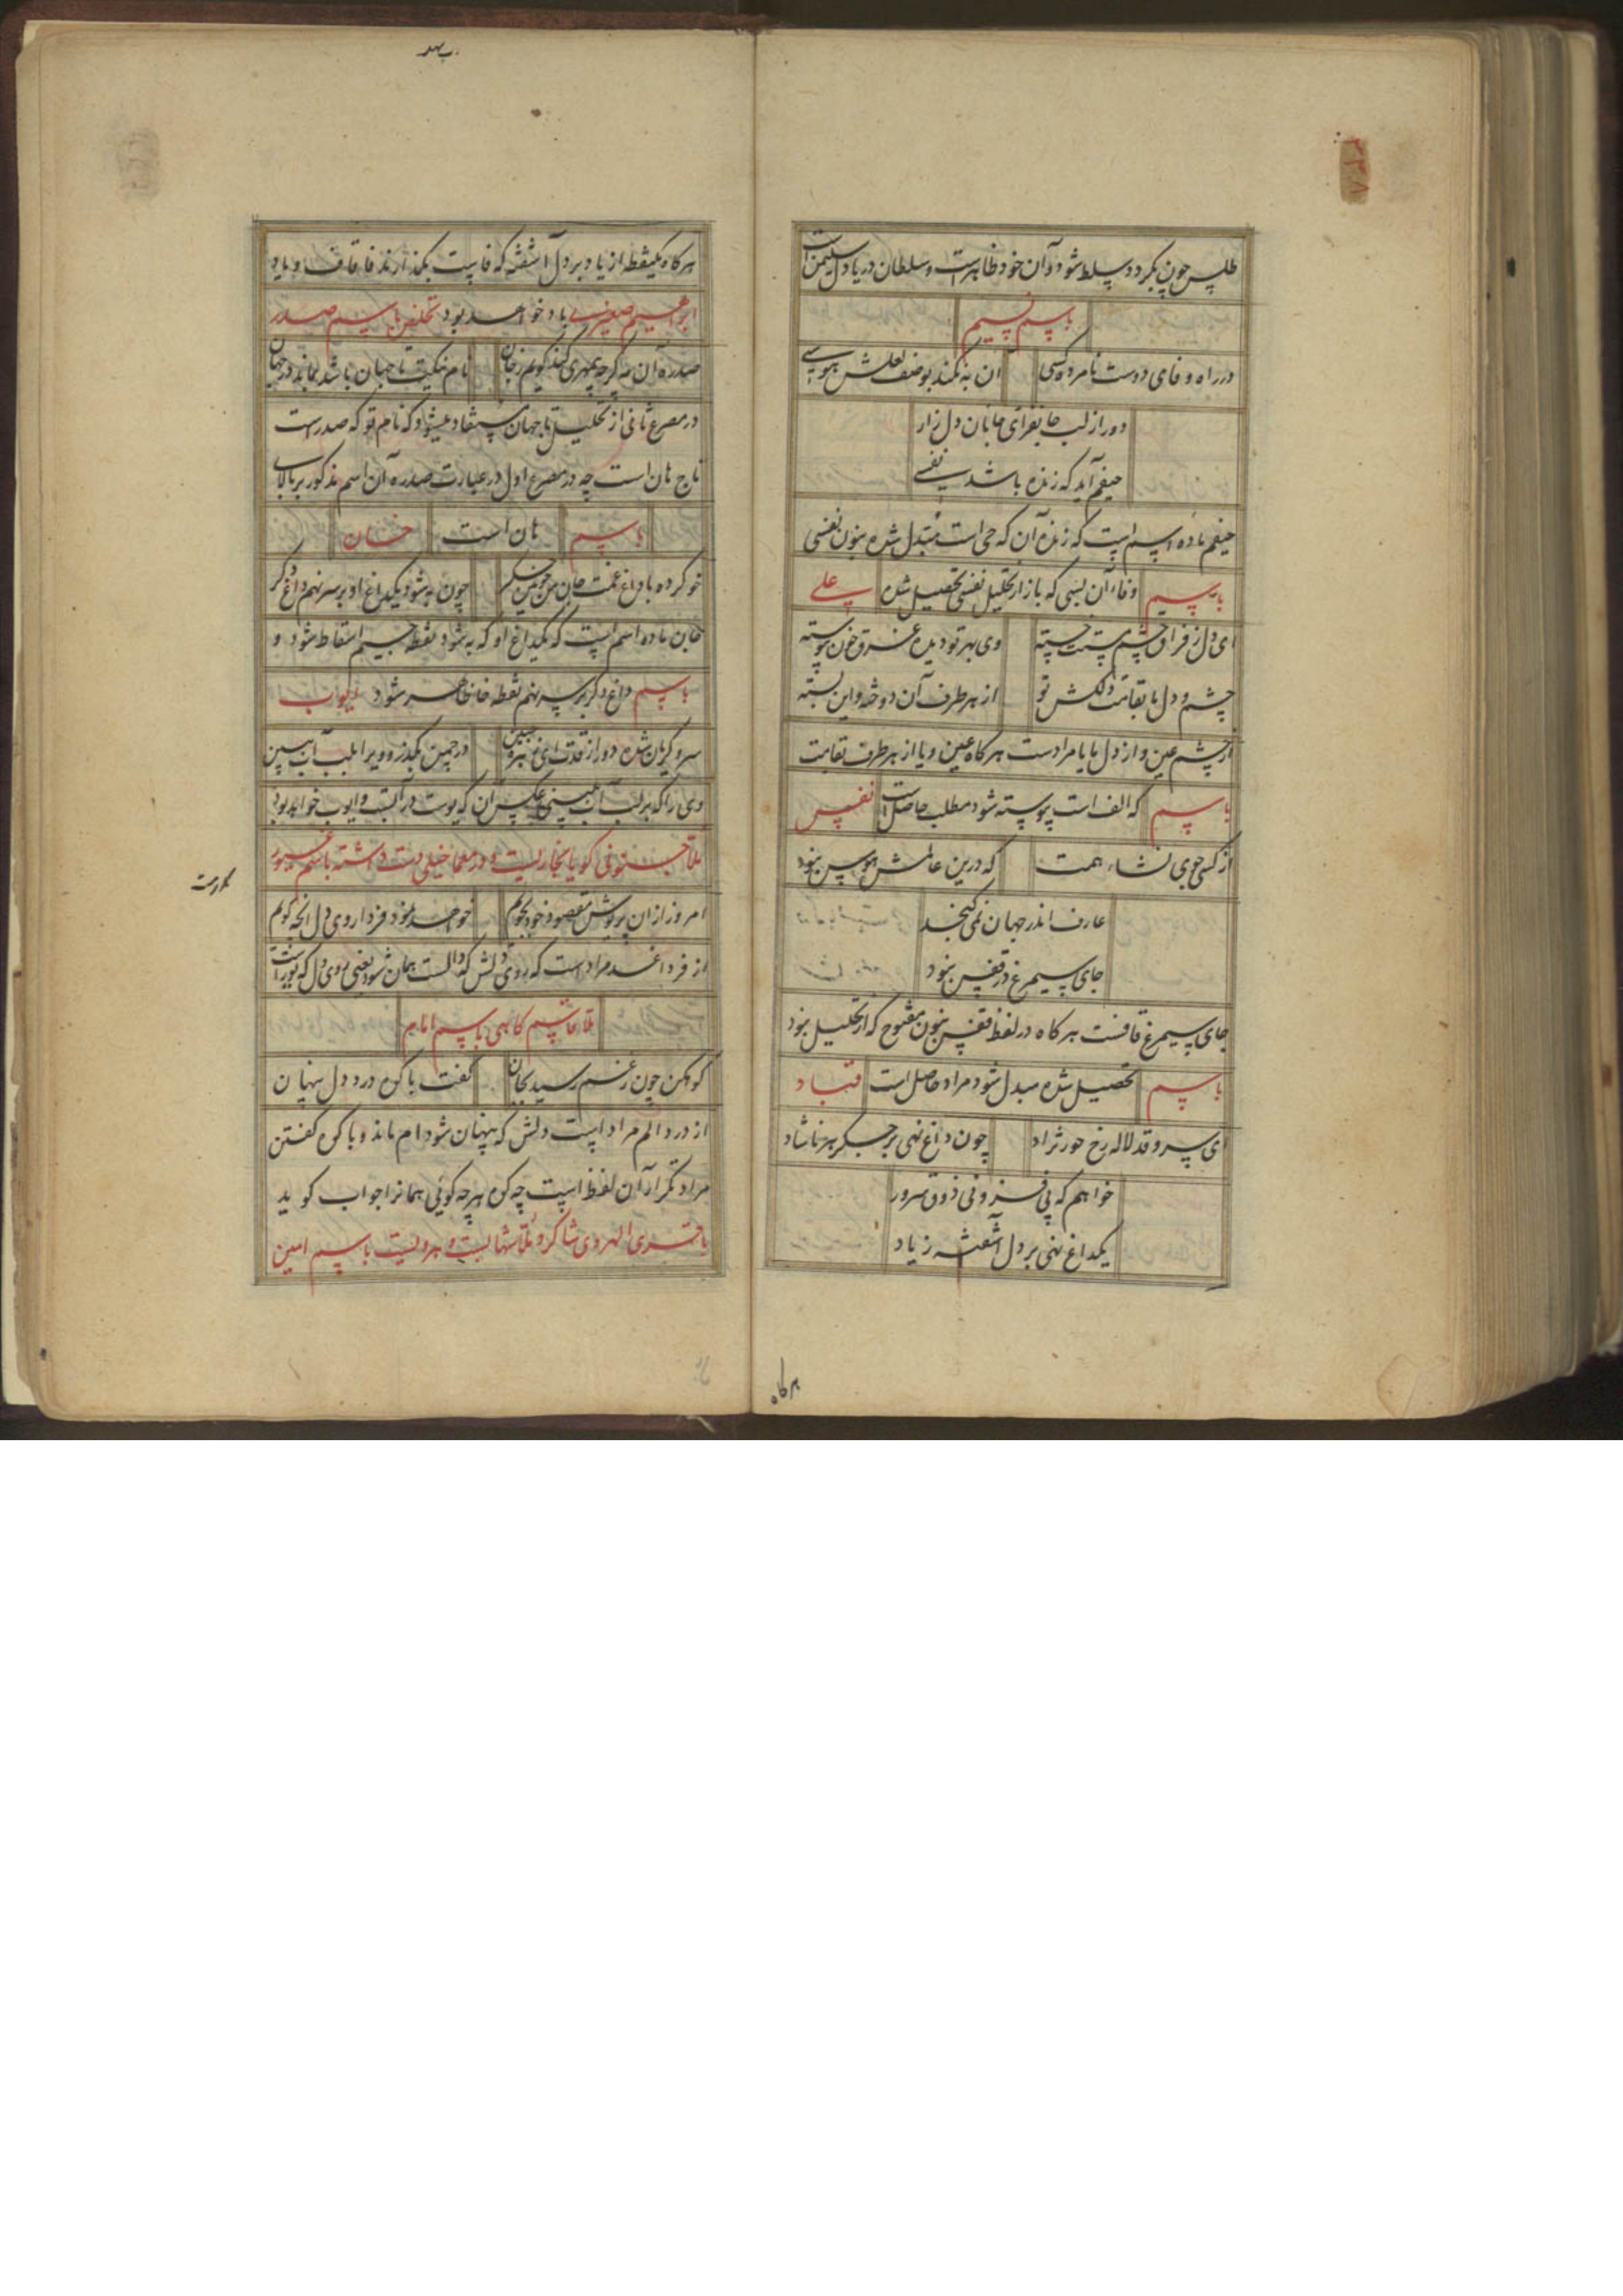 ۳۳۸
طلس چون بگردد سلط شود و آن خود ظاهرست و سلطان دریا دل سلیمن است
باسم نسیم
در راه وفای دوست نامرد کسی
ان به نکند بوصف لعلش هوسی
دور از لب جانفزای جانان دل زار
حیفم آید که زنده باشد نفسی
حیفم ماده اسم است که زنده آن که حی است مبتدل شده بنون نفسی
باسم
وفا، آن سی که باز از تحلیل نفسی تحصیل شده
علی
ای دل ز فراق چشم مستت خسته
وی بهر تو دیده غرق خون پیوسته
چشم و دل ما بقامت دلکش تو
از هر طرف آن دوخته و این بسته
از چشم عین و از دل ما یا مرادست هرگاه عین و یا از هر طرف بقامت
باسم
که الف است پیوسته شود مطلب حاصل است
نفس
از کسی جوی نشاء همت
که درین عالمش هوس نبود
عارف اندر جهان نمی گنجد
جای سیمرغ در قفس نبود
جای سیمرغ قافست هرگاه در لفظ قفس بنون مفتوح که از تحلیل نبود
باسم
تحصیل شده مبدل شود مراد حاصل است
قباد
ای سرو قد لاله رخ حور نژاد
چون داغ نهی بر جگر هر ناشاد
خواهم که پی فزونی ذوق سرور
یکداغ نهی بر دل آشفته زیاد
هرگاه
هرگاه یکنقطه از یاد بر دل آشفته که فاست بگذارند فا قاف و یا د
ابراهیم صغیر باد خواهد بود تخلص باسم صدر
صدره آن مه گرچه بیمهری کند گویم بجان
نام نیکت تا جهان باشد بماند در جهان
در مصرع ثانی از تحلیل تا جهان مستفاد میشود که نام تو که صدر است
تاج هان است چه در مصرع اول در عبارت صدره آن اسم مذکور بر بالای
باسم
هان است
خان
خو کرده با داغ غمت جان من خونین جگر
چون به شود یکداغ او بر سر نهم داغ دگر
جان ماده اسم است که یکداغ او که به شود نقطه جیم اسقاط شود و
باسم
داغ دگر بر سر نهم نقطه خا ظاهر شود
ایوب
سرو گریان شده دور از قدت ای
در چمن بگذر و ویرا بلب آب ببین
وی را که بر لب آب ببینی عکس آن که یوست در آب و ایوب خواهد بود
ملا جنونی گویا بخاریست و در معما خیلی دست داشته باسم غیور
امروز از ان پریوش مقصود خود بجویم
خواهد نمود فردا روی دل انچه گویم
از فردا غد مرادست که روی دلش که دالست همان شود یعنی روی دل که یوراست
ملا قاسم کاهی باسم امام
کوهکن چون ز غم رسید بجان
گفت با کوه درد دل پنهان
از درد الم مراد است دلش که پنهان شود ام ماند و با کوه گفتن
مراد تکرار آن لفظ است چه کوه هر چه گوئی همانرا جواب گوید
باقری الهروی شاگرد ملا شهابست و هرویست باسم امین